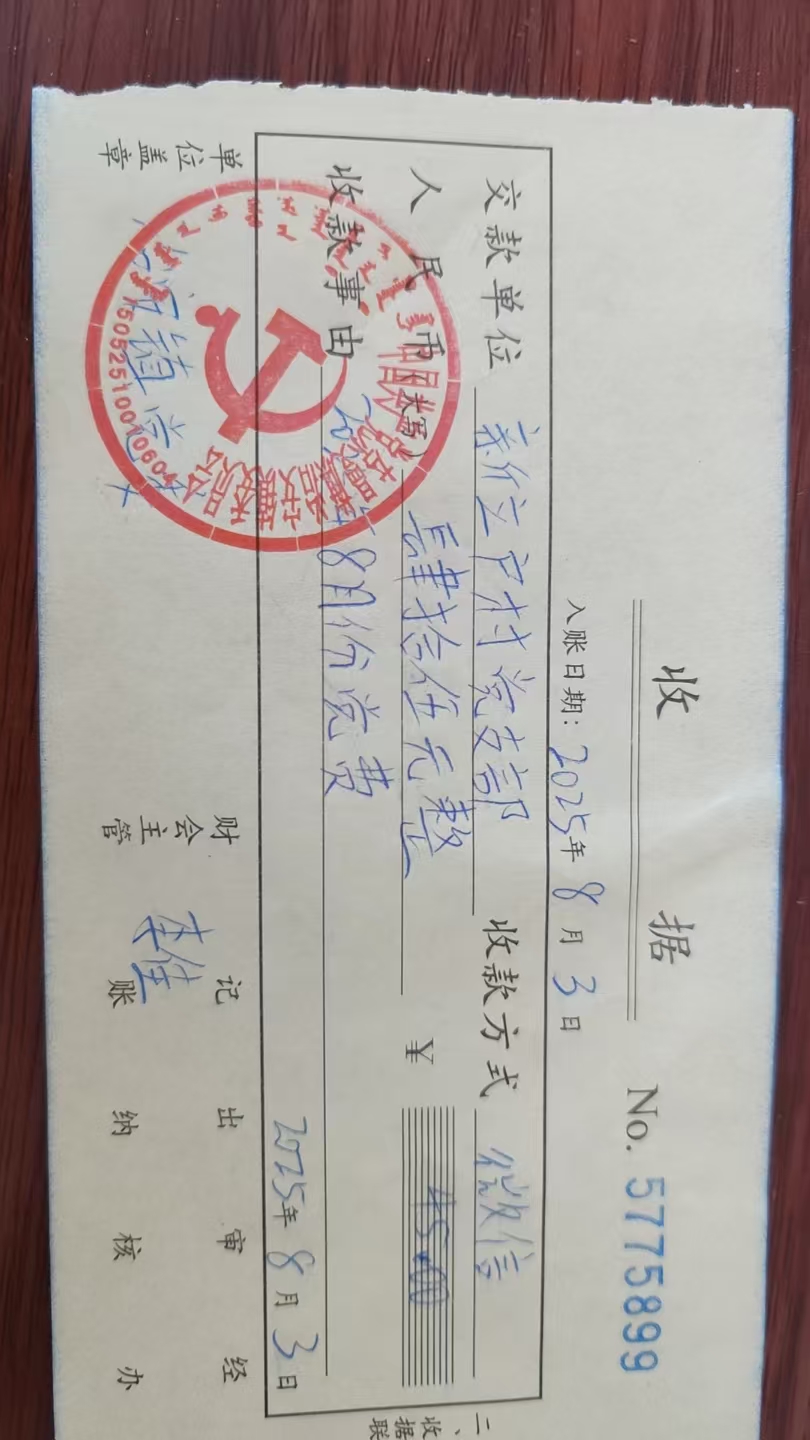 收 据 No. 5775899
入账日期：2025年 8 月 3 日
交款单位 新立户村党支部 收款方式 微信
人民币(大写) 肆拾伍元整 ¥ 45.00
收款事由 8月份党费
2025年 8 月 3 日
单位盖章 财会主管 记账 李佳 出纳 审核 经办
二、收据联
1505251001060